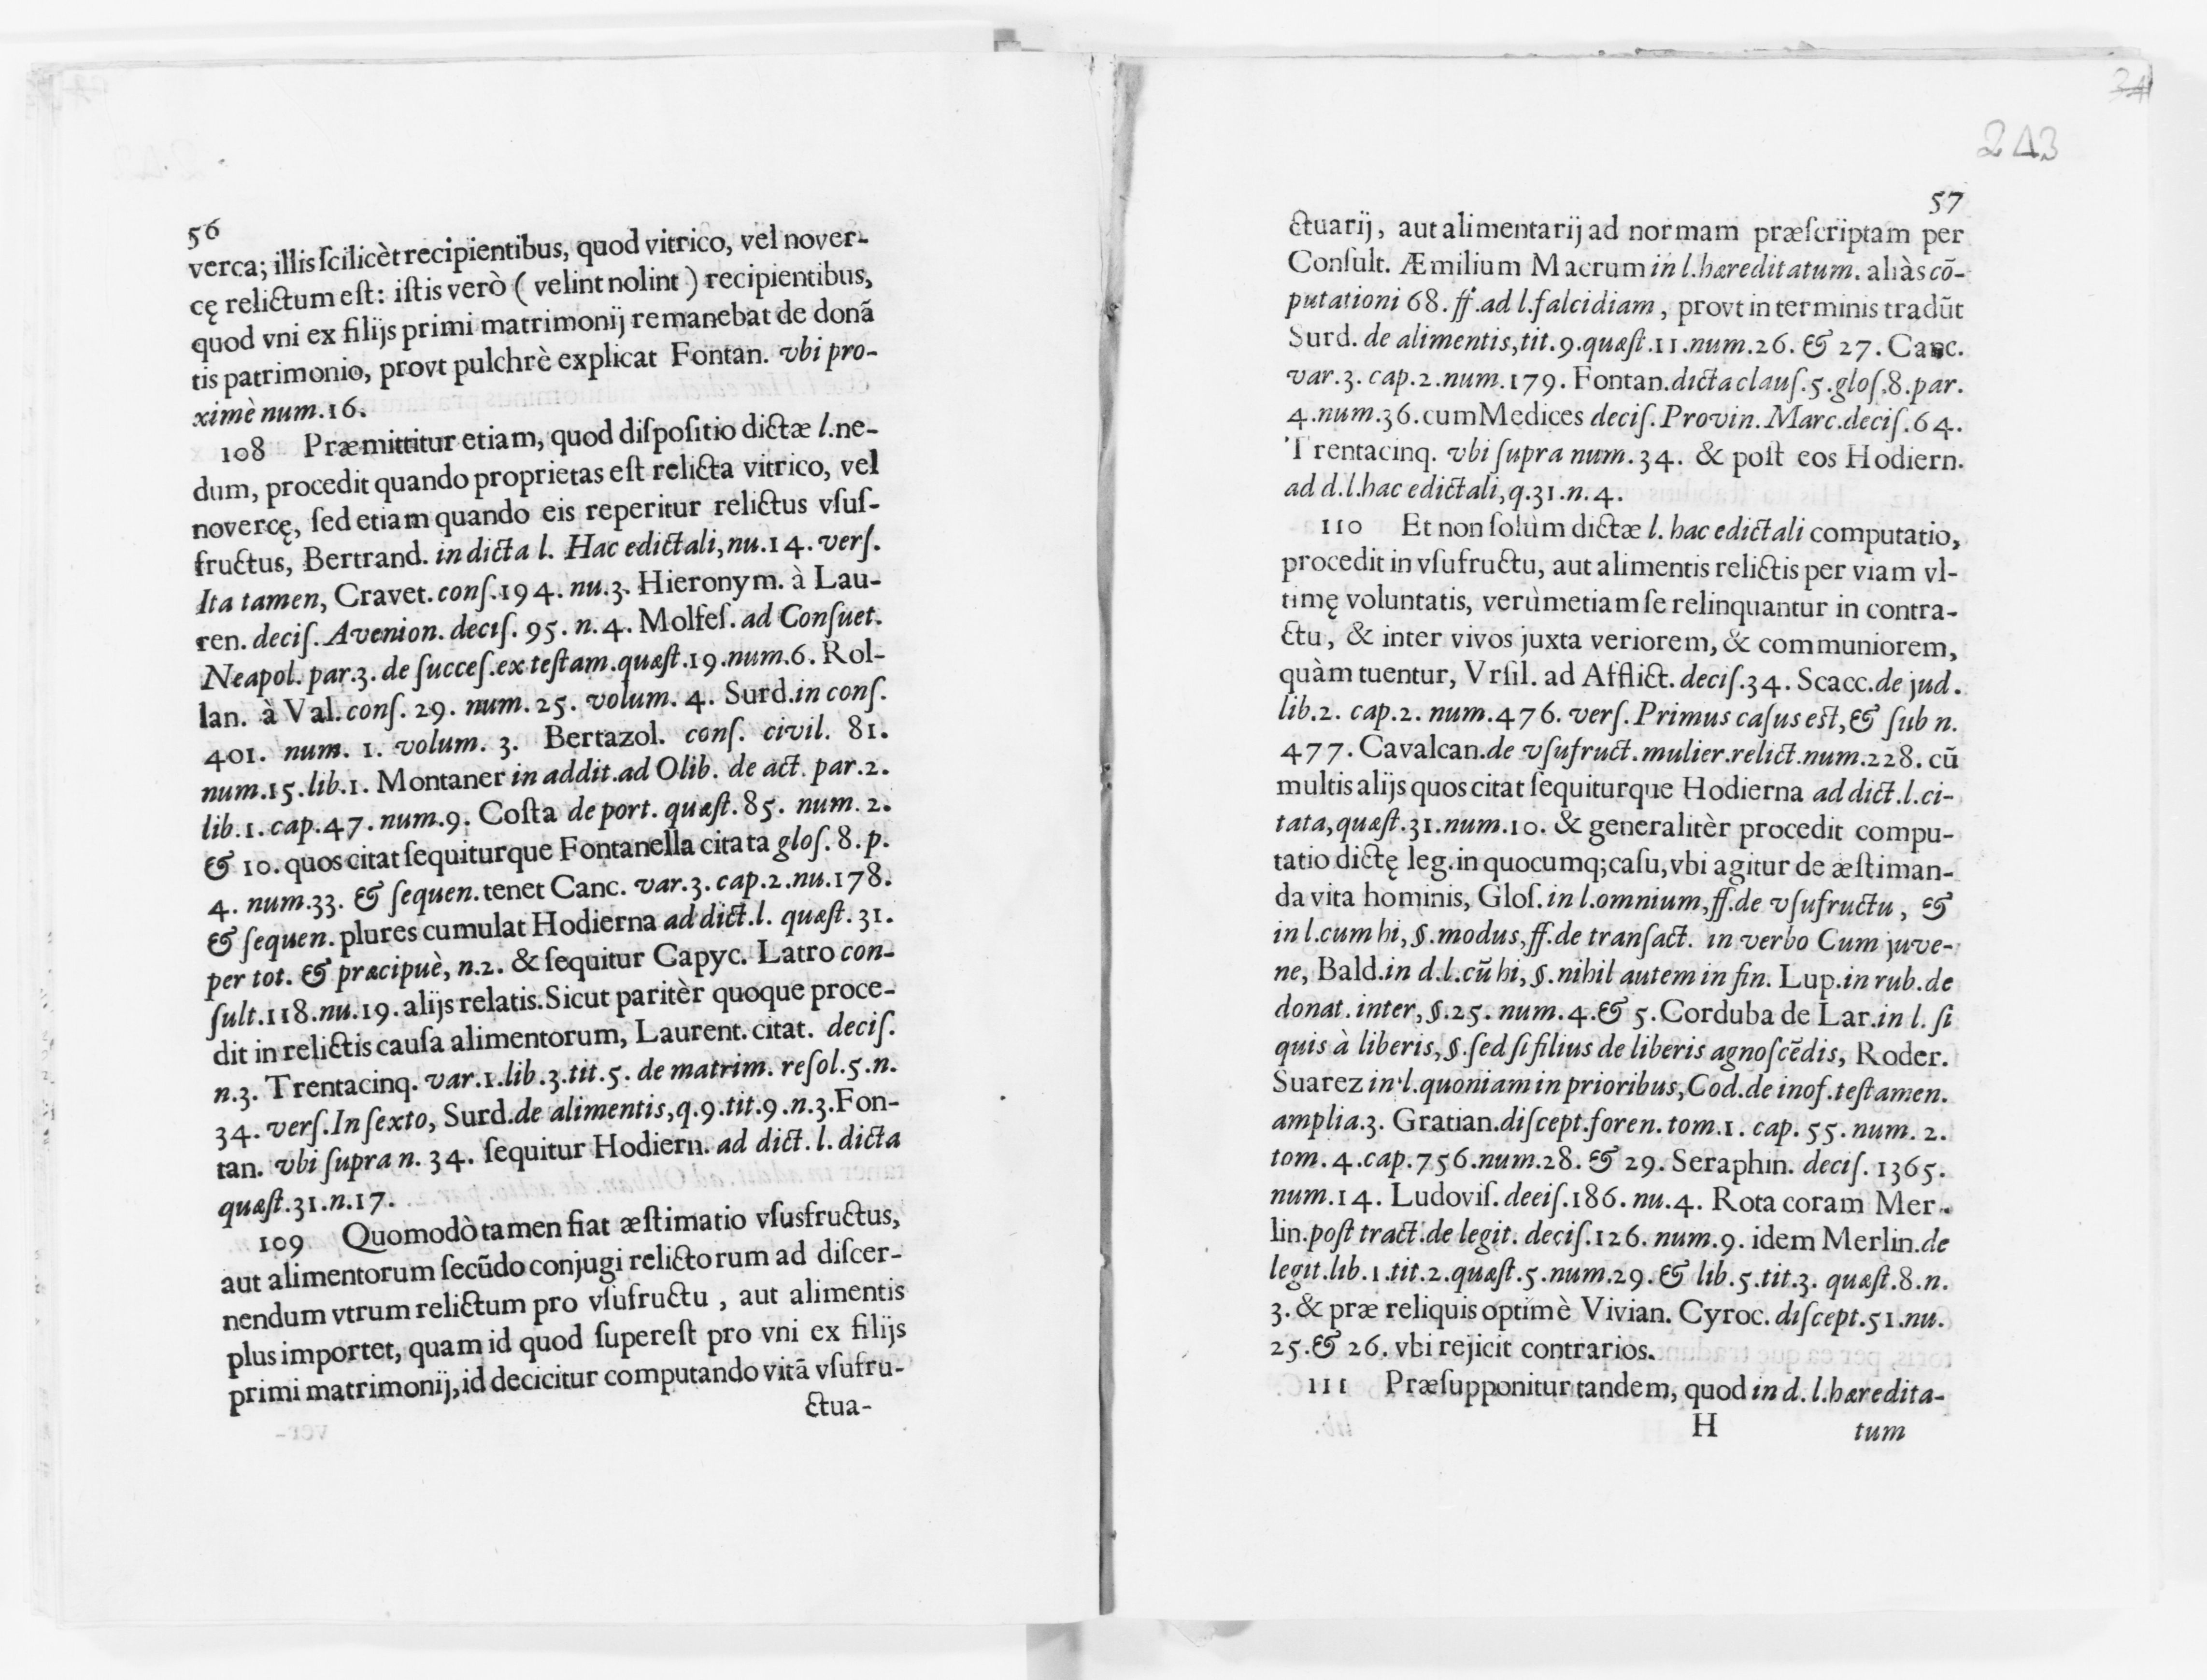 56
verca; illis ſcilicèt recipientibus, quod vitrico, vel nover-
cę relictum eſt: iſtis verò ( velint nolint ) recipientibus,
quod vni ex filijs primi matrimonij remanebat de donã
tis patrimonio, provt pulchrè explicat Fontan. vbi pro-
ximè num.16.
108 Præmittitur etiam, quod diſpoſitio dictæ l.ne-
dum, procedit quando proprietas eſt relicta vitrico, vel
novercę, ſed etiam quando eis reperitur relictus vſuſ-
fructus, Bertrand. in dicta l. Hac edictali, nu.14. verſ.
Ita tamen, Cravet. conſ.194. nu.3. Hieronym. à Lau-
ren. deciſ. Avenion. deciſ. 95. n.4. Molfeſ. ad Conſuet.
Neapol. par.3. de ſucceſ.ex teſtam.quæſt.19.num.6. Rol-
lan. à Val. conſ. 29. num. 25. volum. 4. Surd.in conſ.
401. num. 1. volum. 3. Bertazol. conſ. civil. 81.
num.15.lib.1. Montaner in addit.ad Olib. de act. par.2.
lib.1.cap.47.num.9. Coſta de port. quæſt. 85. num. 2.
& 10. quos citat ſequiturque Fontanella citata gloſ. 8. p.
4. num.33. & ſequen. tenet Canc. var.3. cap.2.nu.178.
& ſequen. plures cumulat Hodierna ad dict.l. quæſt. 31.
per tot. & præcipuè, n.2. & ſequitur Capyc. Latro con-
ſult.118.nu.19. alijs relatis. Sicut paritèr quoque proce-
dit in relictis cauſa alimentorum, Laurent. citat. deciſ.
n.3. Trentacinq. var.1.lib.3.tit.5. de matrim. reſol.5.n.
34. verſ.In ſexto, Surd.de alimentis,q.9.tit.9.n.3.Fon-
tan. vbi ſupra n. 34. ſequitur Hodiern. ad dict. l. dicta
quæſt.31.n.17.
109 Quomodò tamen fiat æſtimatio vſusfructus,
aut alimentorum ſecũdo conjugi relictorum ad diſcer-
nendum vtrum relictum pro vſufructu, aut alimentis
plus importet, quam id quod ſupereſt pro vni ex filijs
primi matrimonij, id decicitur computando vitã vſufru-
ctua-
34
243
57
ctuarij, aut alimentarij ad normam præſcriptam per
Conſult. Æmilium Macrum in l.hæreditatum. aliàs cõ-
putationi 68. ff.ad l.falcidiam, provt in terminis tradũt
Surd. de alimentis,tit.9.quæſt.11.num.26. & 27. Canc.
var.3. cap.2.num.179. Fontan.dicta clauſ.5.gloſ.8.par.
4.num.36.cum Medices deciſ. Provin. Marc.deciſ.64.
Trentacinq. vbi ſupra num. 34. & poſt eos Hodiern.
ad d.l.hac edictali,q.31.n.4.
110 Et non ſolùm dictæ l. hac edictali computatio,
procedit in vſufructu, aut alimentis relictis per viam vl-
timę voluntatis, verùmetiam ſe relinquantur in contra-
ctu, & inter vivos juxta veriorem, & communiorem,
quàm tuentur, Vrſil. ad Afflict. deciſ.34. Scacc.de jud.
lib.2. cap.2. num.476. verſ. Primus caſus eſt,& ſub n.
477. Cavalcan.de vſufruct.mulier.relict.num.228. cũ
multis alijs quos citat ſequiturque Hodierna ad dict.l.ci-
tata,quæſt.31.num.10. & generalitèr procedit compu-
tatio dictę leg.in quocumq; caſu, vbi agitur de æſtiman-
da vita hominis, Gloſ. in l.omnium,ff.de vſufructu, &
in l.cum hi, §.modus,ff.de tranſact. in verbo Cum juve-
ne, Bald.in d.l.cũ hi, §.nihil autem in fin. Lup.in rub.de
donat. inter, §.25. num.4.& 5. Corduba de Lar.in l. ſi
quis à liberis, §.ſed ſi filius de liberis agnoſcẽdis, Roder.
Suarez in l.quoniam in prioribus,Cod.de inof.teſtamen.
amplia.3. Gratian.diſcept.foren. tom.1. cap. 55. num. 2.
tom. 4. cap.756.num.28. & 29. Seraphin. deciſ. 1365.
num.14. Ludoviſ. deeiſ.186. nu.4. Rota coram Mer-
lin.poſt tract.de legit. deciſ.126. num.9. idem Merlin.de
legit.lib.1.tit.2.quæſt.5.num.29. & lib.5.tit.3. quæſt.8.n.
3. & præ reliquis optimè Vivian. Cyroc. diſcept.51.nu.
25.& 26. vbi rejicit contrarios.
111 Præſupponitur tandem, quod in d. l.hæredita-
H tum